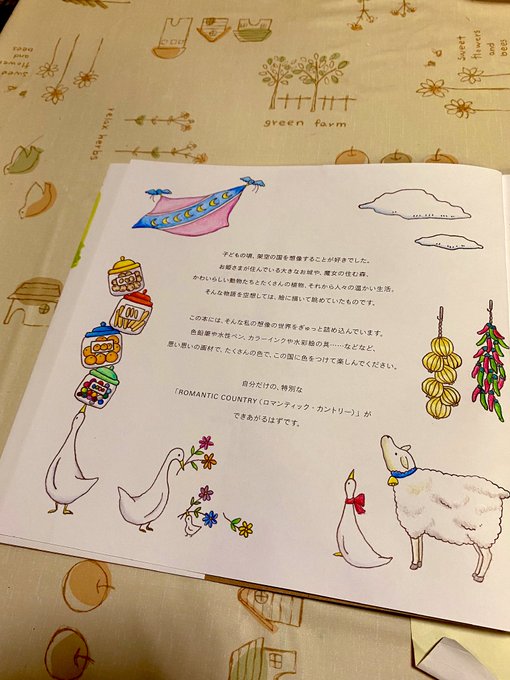 sweet
flowers
and
bees
sweet
flowers
and
bees
green farm
relax herbs
子どもの頃、架空の国を想像することが好きでした。
お姫さまが住んでいる大きなお城や、魔女の住む森、
かわいらしい動物たちとたくさんの植物、それから人々の温かい生活。
そんな物語を空想しては、絵に描いて眺めていたものです。
この本には、そんな私の想像の世界をぎゅっと詰め込んでいます。
色鉛筆や水性ペン、カラーインクや水彩絵の具……などなど、
思い思いの画材で、たくさんの色で、この国に色をつけて楽しんでください。
自分だけの、特別な
「ROMANTIC COUNTRY(ロマンティック・カントリー)」が
できあがるはずです。